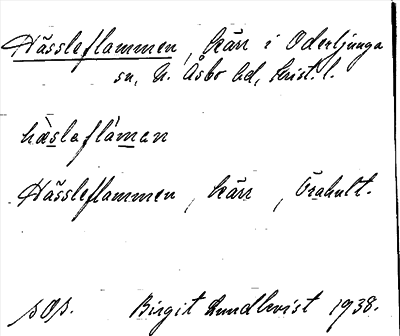 Hässleflammen, kärr i Oderljunga
sn, N. Åsbo hd, Krist. l.
hàsleflàmen
Hässleflammen, kärr, Örahult.
Birgit Lundkvist 1938.